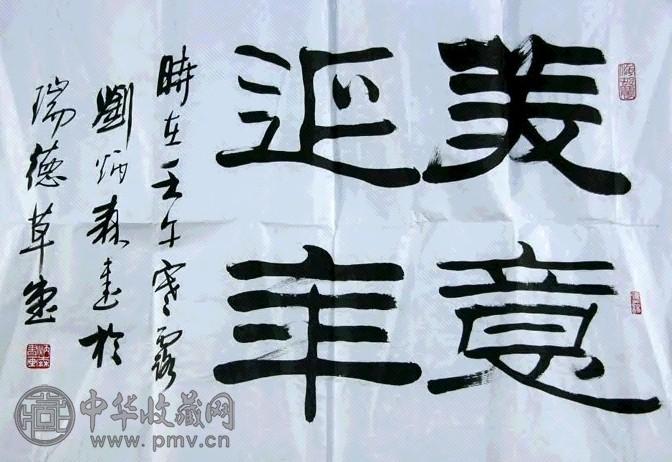 美意
延年
時在壬午寒露
劉炳森書於
瑞德草堂
中华收藏网
www.pmv.cn